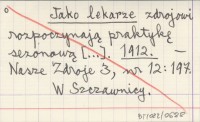 Jako lekarze zdrojowi
rozpoczynają praktykę
sezonową [...]. 1912. —
Nasze Zdroje 3, nr 12: 147.
W Szczawnicy.